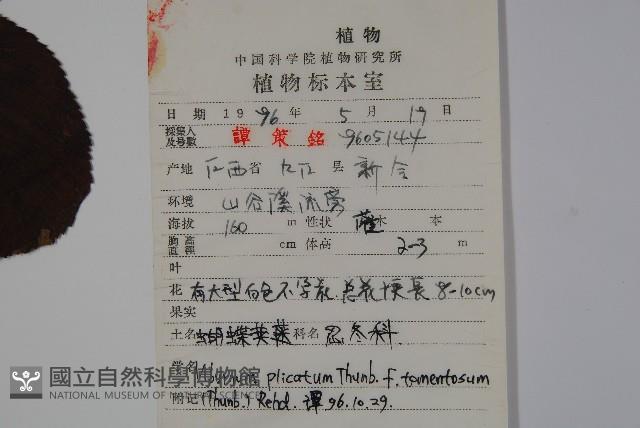 植物
中国科学院植物研究所
植物标本室
日期 1996年 5月 19日
採集人及号數 譚策銘 9605144
产地 江西省 九江县 新合
环境 山谷溪流旁
海拔 160 m 性状 灌木 本
胸高直徑 cm 体高 2-3 m
叶
花 有大型白色不孕花. 总花梗長 8-10cm
果实
土名 蝴蝶荚蒾 科名 忍冬科.
学名 plicatum Thunb. f. tomentosum
附记 (Thunb.) Rehd. 譚 96.10.29.
國立自然科學博物館
NATIONAL MUSEUM OF NATURAL SCIENCE